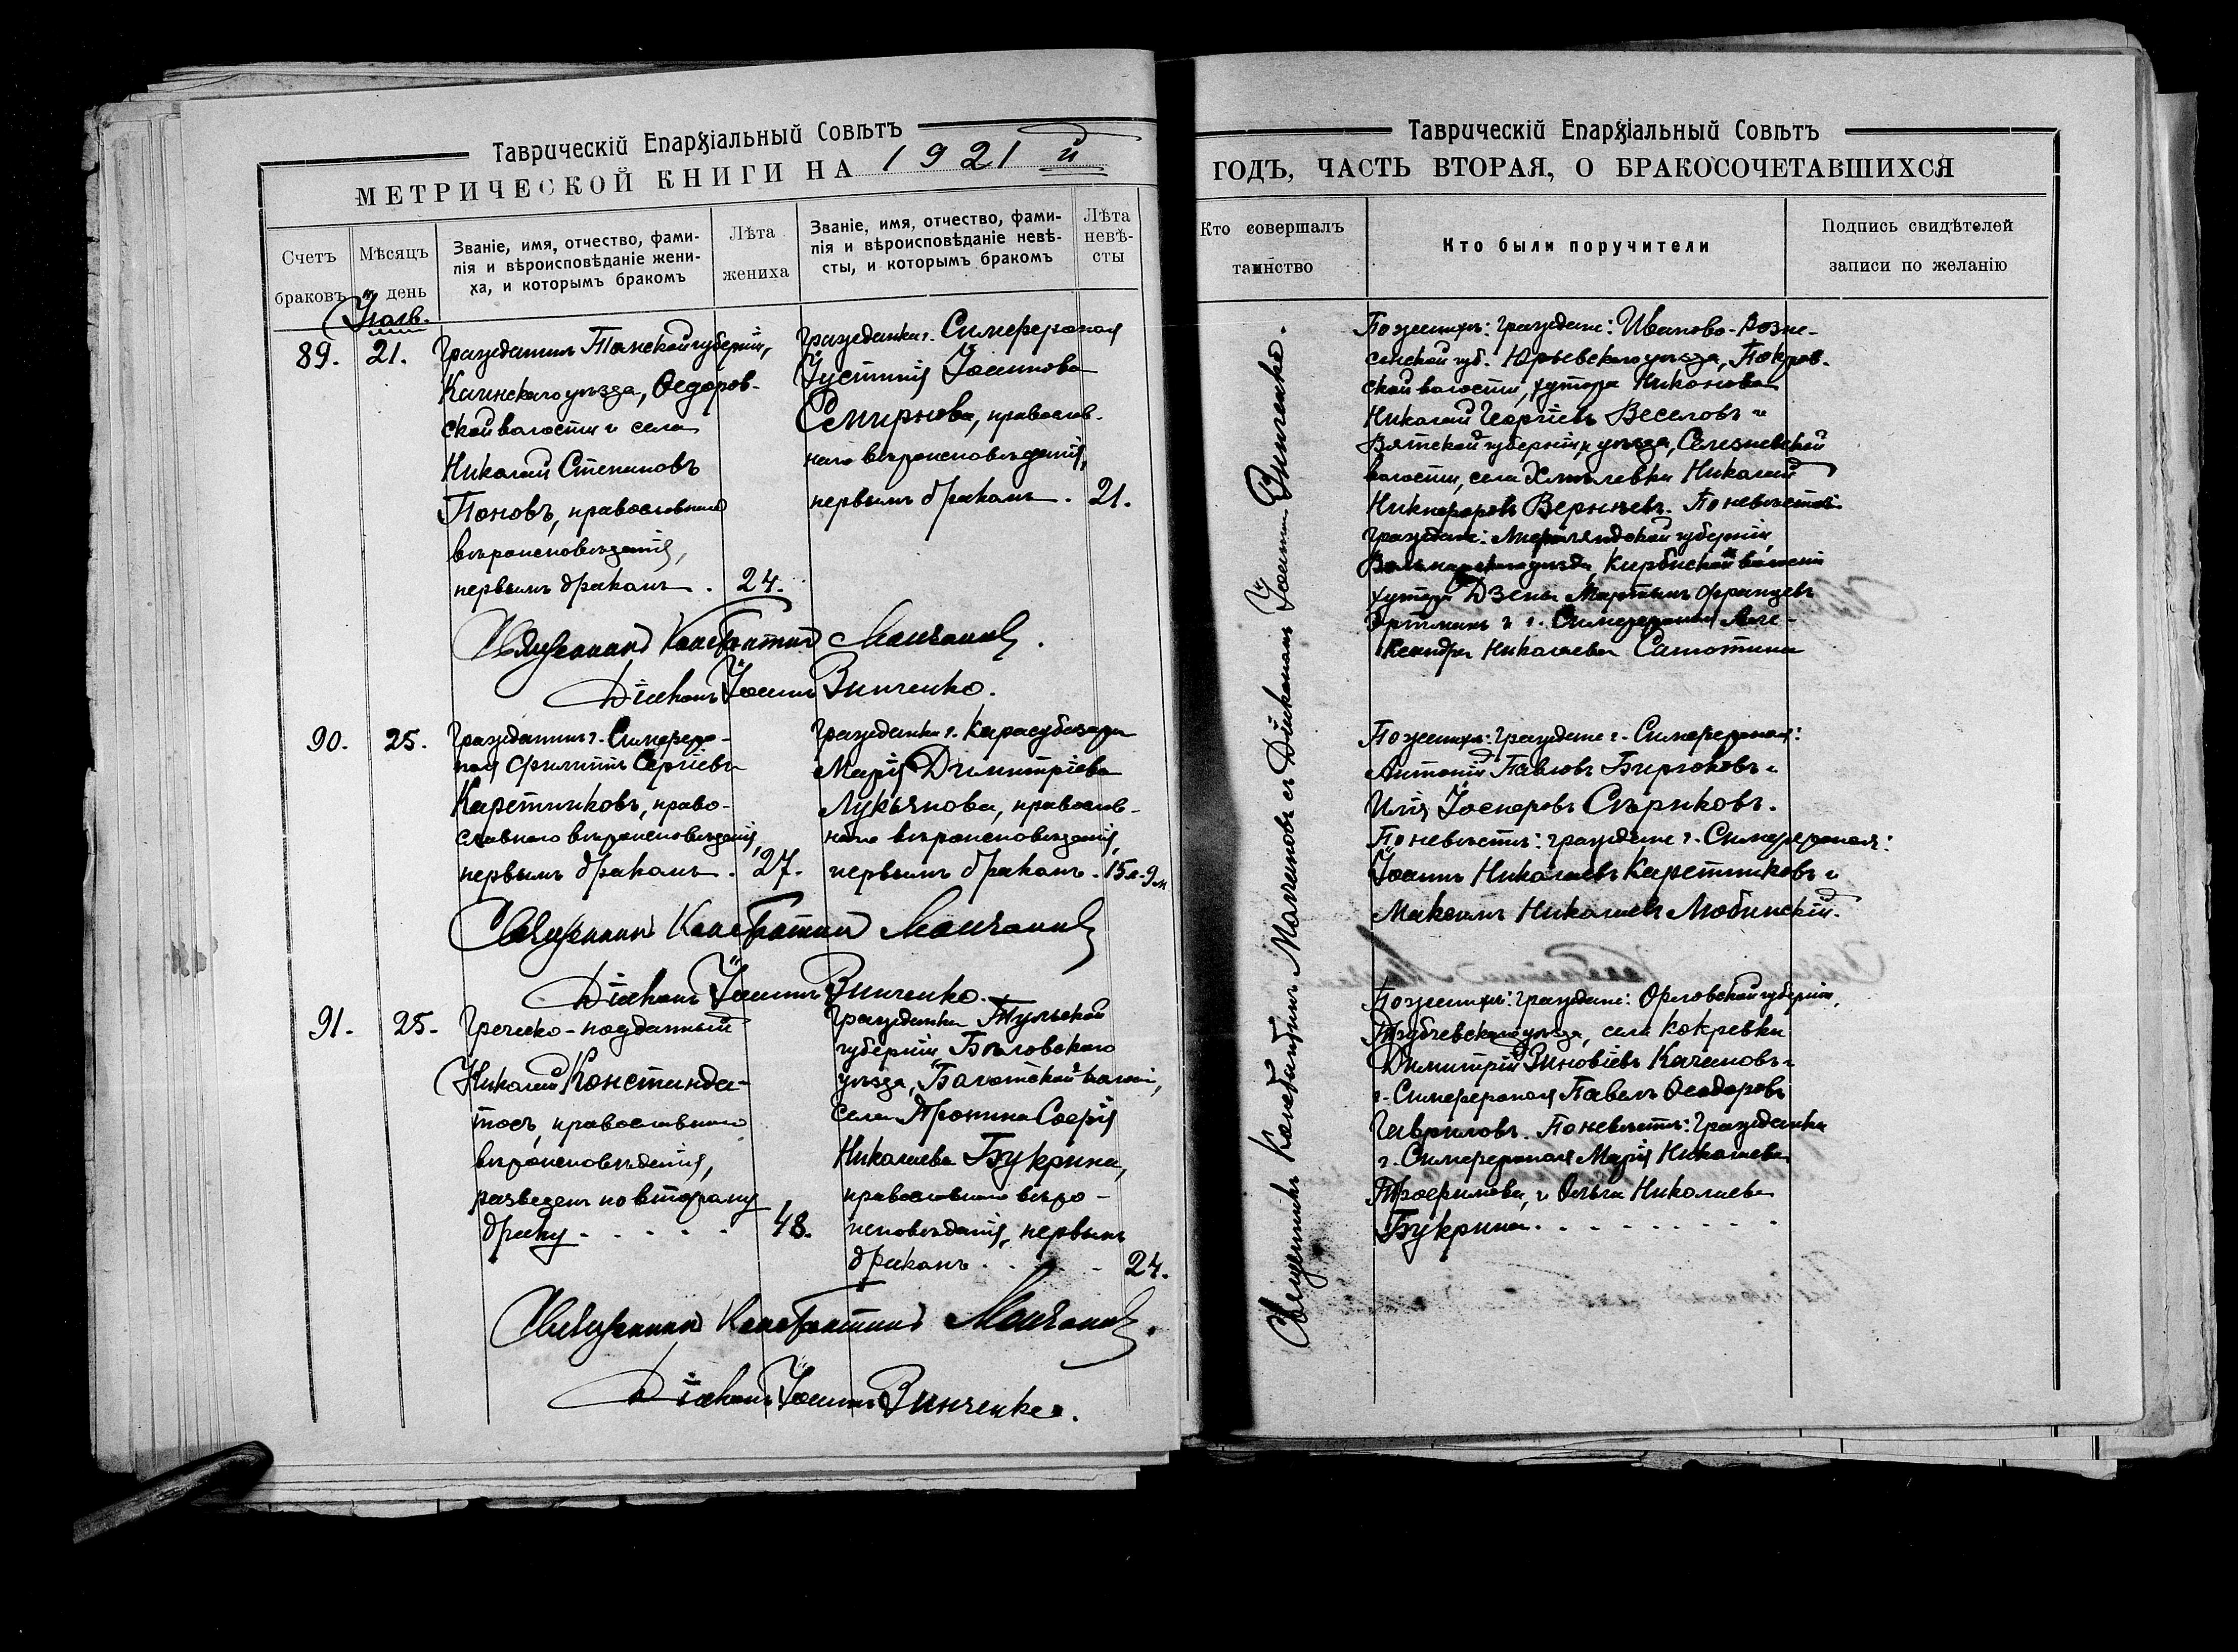 Таврическій Епархіальный Совѣтъ
МЕТРИЧЕСКОЙ КНИГИ НА 1921 й
Счетъ браковъ
Мѣсяцъ и день
Званіе, имя, отчество, фами-
лія и вѣроисповѣданіе жени-
ха, и которымъ бракомъ
Лѣта
жениха
Званіе, имя, отчество, фами-
лія и вѣроисповѣданіе невѣ-
сты, и которымъ бракомъ
Лѣта
невѣ-
сты
89.
21.
Гражданинъ Томской губерніи,
Каинскаго уѣзда, Ѳедоров-
ской волости и села
Николай Степановъ
Поповъ, православнаго
вѣроисповѣданія,
первымъ бракомъ. 24.
Гражданка г. Симферополя
Іустинія Іоаннова
Смирнова, православ-
наго вѣроисповѣданія,
первымъ бракомъ. 21.
Священникъ Константинъ
Діаконъ Іоаннъ Винченко.
90.
25.
Гражданинъ г. Симферо-
поля Филиппъ Сергіевъ
Каретниковъ, право-
славнаго вѣроисповѣданія,
первымъ бракомъ. 27.
Гражданка г. Карасубазара
Марія Димитріева
Лукьянова, православ-
наго вѣроисповѣданія,
первымъ бракомъ. 15 л. 9 м
Священникъ Константинъ
Діаконъ Іоаннъ Винченко.
91.
25.
Греческо-подданный
Николай Констанда-
тосъ, православнаго
вѣроисповѣданія,
разведенъ по второму
браку. 48.
Гражданка Тульской
губерніи, Бѣловскаго
уѣзда, волости,
села Пронина Софія
Николаева Букрина,
православнаго вѣро-
исповѣданія, первымъ
бракомъ. 24.
Священникъ Константинъ
Діаконъ Іоаннъ Винченко.
Таврическій Епархіальный Совѣтъ
ГОДЪ, ЧАСТЬ ВТОРАЯ, О БРАКОСОЧЕТАВШИХСЯ
Кто совершалъ
таинство
Кто были поручители
Подпись свидѣтелей
записи по желанію
Священникъ Константинъ съ Діакономъ Іоанномъ Винченко.
По женихѣ: граждане: Иваново-Возне-
сенской губ. Юрьевскаго уѣзда, Покров-
ской волости, хутора Никонова
Николай Георгіевъ Веселовъ и
Вятской губерніи и уѣзда, Селезневской
волости, села Николай
Никифоровъ По невѣстѣ:
граждане: Лифляндской губерніи,
Вольмарскаго уѣзда, Кирбиской волости
хутора Дзены Мартынъ Францевъ
и г. Симферополя Але-
ксандра Николаева
По женихѣ: граждане г. Симферополя:
Антоній Павловъ Бирюковъ и
Илія Іосифовъ Сѣриковъ.
По невѣстѣ: граждане г. Симферополя:
Іоаннъ Николаевъ Каретниковъ и
Максимъ Николаевъ Любинскій.
По женихѣ: граждане: Орловской губерніи,
Трубчевскаго уѣзда, села Кокревки
Димитрій Зиновіевъ Качановъ и
г. Симферополя Павелъ Ѳеодоровъ
Гавриловъ. По невѣстѣ: гражданки
г. Симферополя Марія Николаева
Трофимова, и Ольга Николаева
Букрина.